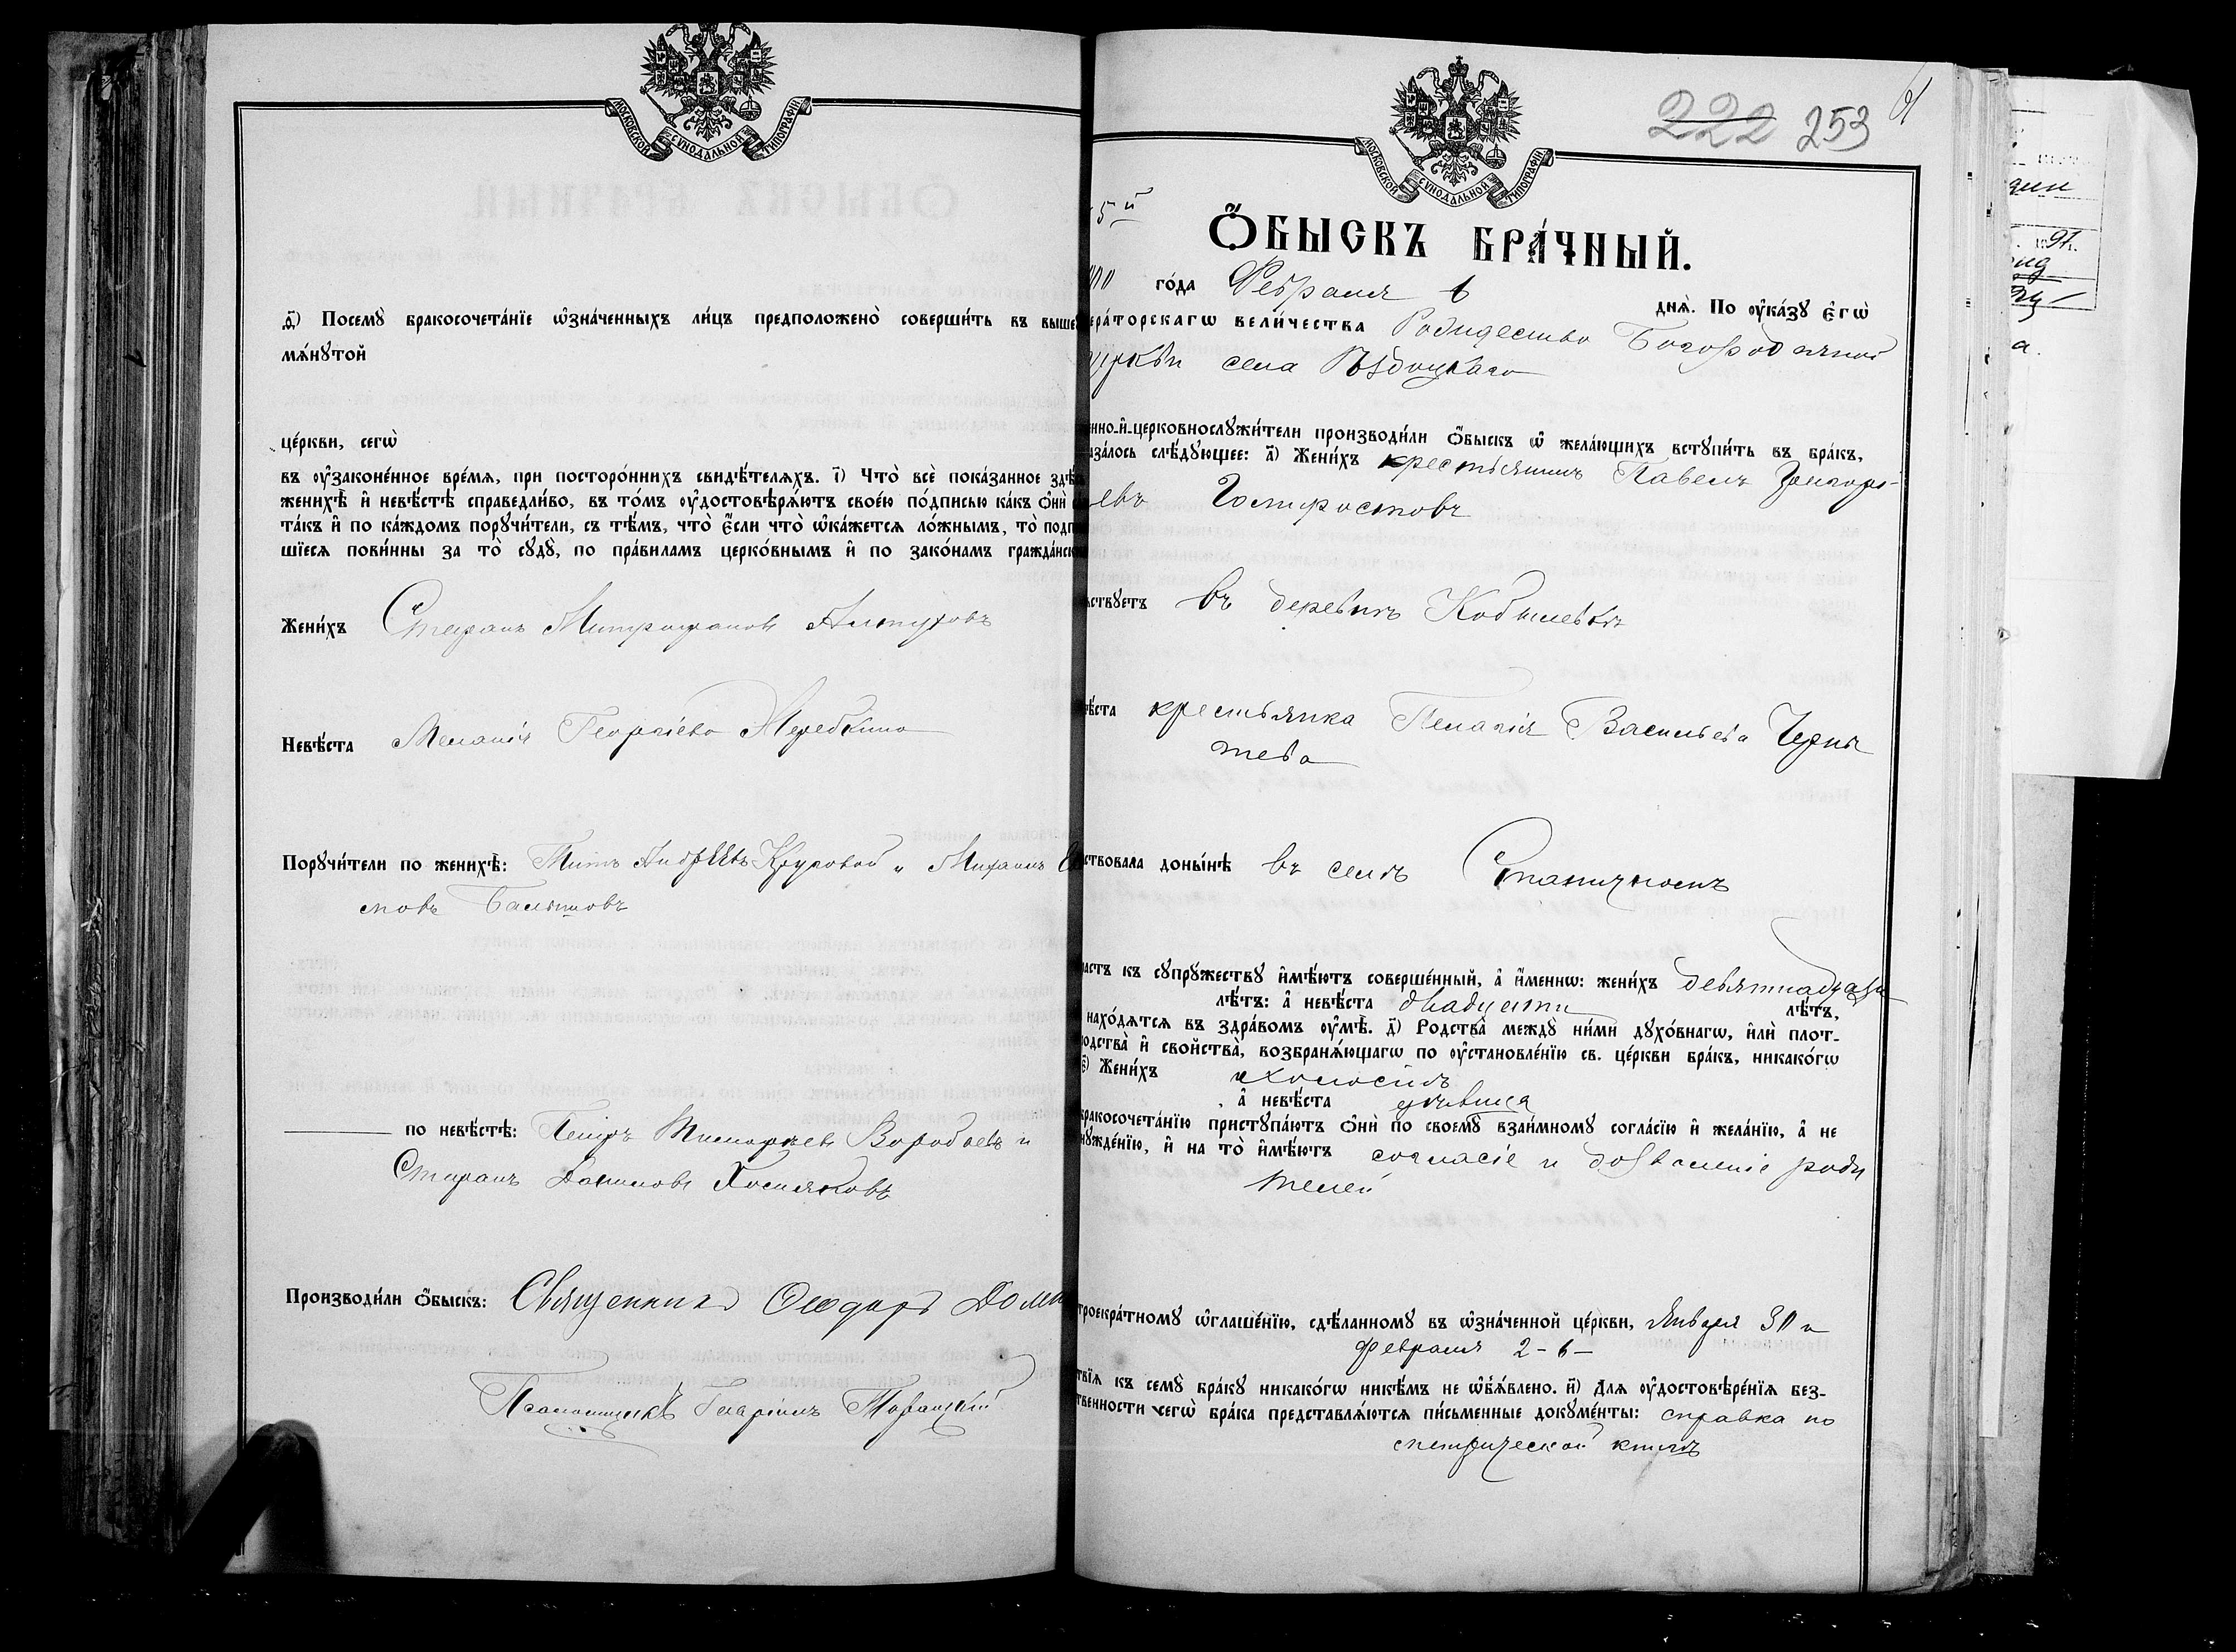 МОСКОВСКОЙ СУНОДАЛЬНОЙ ТИПОГРАФІИ
.д҃) Посемꙋ̀ бракосочета́нїе ѡ҆зна́ченныхъ ли́цъ предположено̀ соверши́ть въ выше
мѧ́нꙋтой
це́ркви, сегѡ̀
въ ᲂу҆зако́ненное вре́мѧ, при посторо́ннихъ свидѣ́телѧхъ. і҃) Что̀ всѐ пока́занное здѣ
женихѣ̀ и҆ невѣ́стѣ справедли́во, въ то́мъ ᲂу҆достовѣрѧ́ютъ свое́ю по́дписью ка́къ ѻ҆нѝ
та́къ и҆ по ка́ждомъ порꙋчи́тели, съ тѣ́мъ, что̀ є҆́сли что̀ ѡ҆ка́жетсѧ ло́жнымъ, то̀ подп
шїесѧ пови́нны за то̀ сꙋдꙋ̀, по пра́виламъ церко́внымъ и҆ по зако́намъ гражда́нск
Жени́хъ Стефанъ Митрофановъ Алтуховъ
Невѣ́ста Меланія Георгіева Жеребкина
Порꙋчи́тели по женихѣ̀: Титъ Андреевъ Круговой и Михаилъ
новъ Балышовъ
по невѣ́стѣ: Петръ Тимофеевъ Воробьевъ и
Стефанъ Даниловъ Хосняковъ
Производи́ли ѻ҆́быскъ: Священникъ Ѳеодоръ
Псаломщикъ
222 253
МОСКОВСКОЙ СУНОДАЛЬНОЙ ТИПОГРАФІИ
5й
Ѻ҆́БЫСКЪ БРА́ЧНЫЙ.
го́да Февраля 6 днѧ̀. По ᲂу҆ка́зꙋ є҆гѡ̀
ера́торскагѡ вели́чества Рождество Богородичной
церкви села
енно-и҆-церковнослꙋжи́тели производи́ли ѻ҆́быскъ ѡ҆ жела́ющихъ встꙋпи́ть въ бра́къ,
аза́лось слѣ́дꙋющее: а҃) Жени́хъ крестьянинъ Павелъ Григорь-
евъ
ьствꙋетъ въ деревнѣ Кобылевкѣ
ѣ́ста крестьянка Пелагія Васильева Черны
шева
ствовала доны́нѣ въ селѣ Станичномъ
астъ къ сꙋпрꙋ́жествꙋ и҆мѣ́ютъ соверше́нный, а҆ и҆́меннѡ: жени́хъ девятнадцати
лѣ́тъ: а҆ невѣ́ста двадцати лѣ́тъ,
нахо́дѧтсѧ въ здра́вомъ ᲂу҆мѣ̀. д҃) Родства̀ междꙋ̀ ни́ми дꙋхо́внагѡ, и҆лѝ плот-
одства̀ и҆ свойства̀, возбранѧ́ющагѡ по ᲂу҆становле́нїю св. це́ркви бра́къ, никако́гѡ
є҃) Жени́хъ холостъ
, а҆ невѣ́ста дѣвица
бракосочета́нїю пристꙋпа́ютъ ѻ҆нѝ по своемꙋ̀ взаи́мномꙋ согла́сїю и҆ жела́нїю, а҆ не
нꙋжде́нїю, и҆ на то̀ и҆мѣ́ютъ согласіе и дозволеніе роди
телей
троекра́тномꙋ ѡ҆глаше́нїю, сдѣ́ланномꙋ въ ѡ҆зна́ченной це́ркви, Января 30 и
февраля 2-6-
твїѧ къ семꙋ̀ бра́кꙋ никако́гѡ никѣ́мъ не ѡ҆б̾ѧ́влено. и҃) Длѧ ᲂу҆достовѣре́нїѧ без-
твенности сегѡ̀ бра́ка представлѧ́ютсѧ пи́сьменные докꙋме́нты: справка по
метрической книгѣ